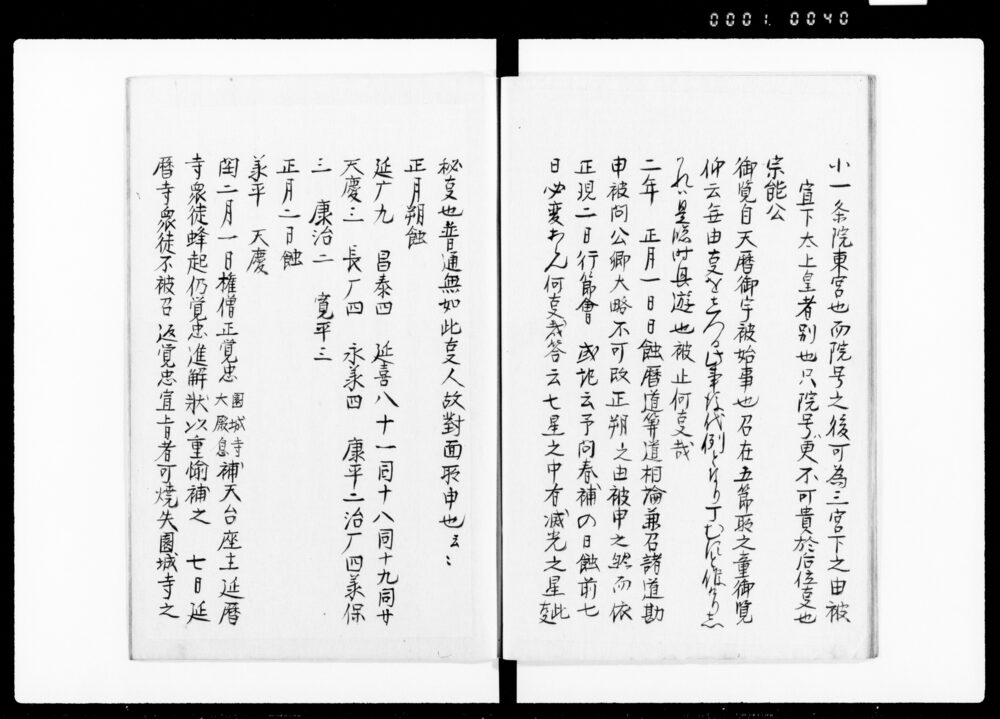 0001 0040
小一条院東宮也而院号之後可為三宮下之由被
宣下太上皇者別也只院号更不可貴於后位事也
宗能公
御覧自天暦御宇被始事也召在五節所之童御覧
仰云毎由事
是臨時具遊也被止何事哉
二年 正月一日日蝕暦道等道相論兼召諸道勘
申被問公卿大略不可改正朔之由被申之然而依
正現二日行節會 或記云予問春補の日蝕前七
日必変あらん何事哉答云七星之中有滅光之星事此
秘事也普通無如此事人故對面所申也云々
正月朔蝕
延广九 昌泰四 延喜八十一同十八同十九同廿
天慶三 長广四 永羕四 康平二治广四羕保
三 康治二 寛平三
正月二日蝕
羕平 天慶
閏二月一日権僧正覚忠園城寺大殿息補天台座主延暦
寺衆徒蜂起仍覚忠進解状以重愉補之 七日延
暦寺衆徒不被召返覚忠宣旨者可焼失園城寺之